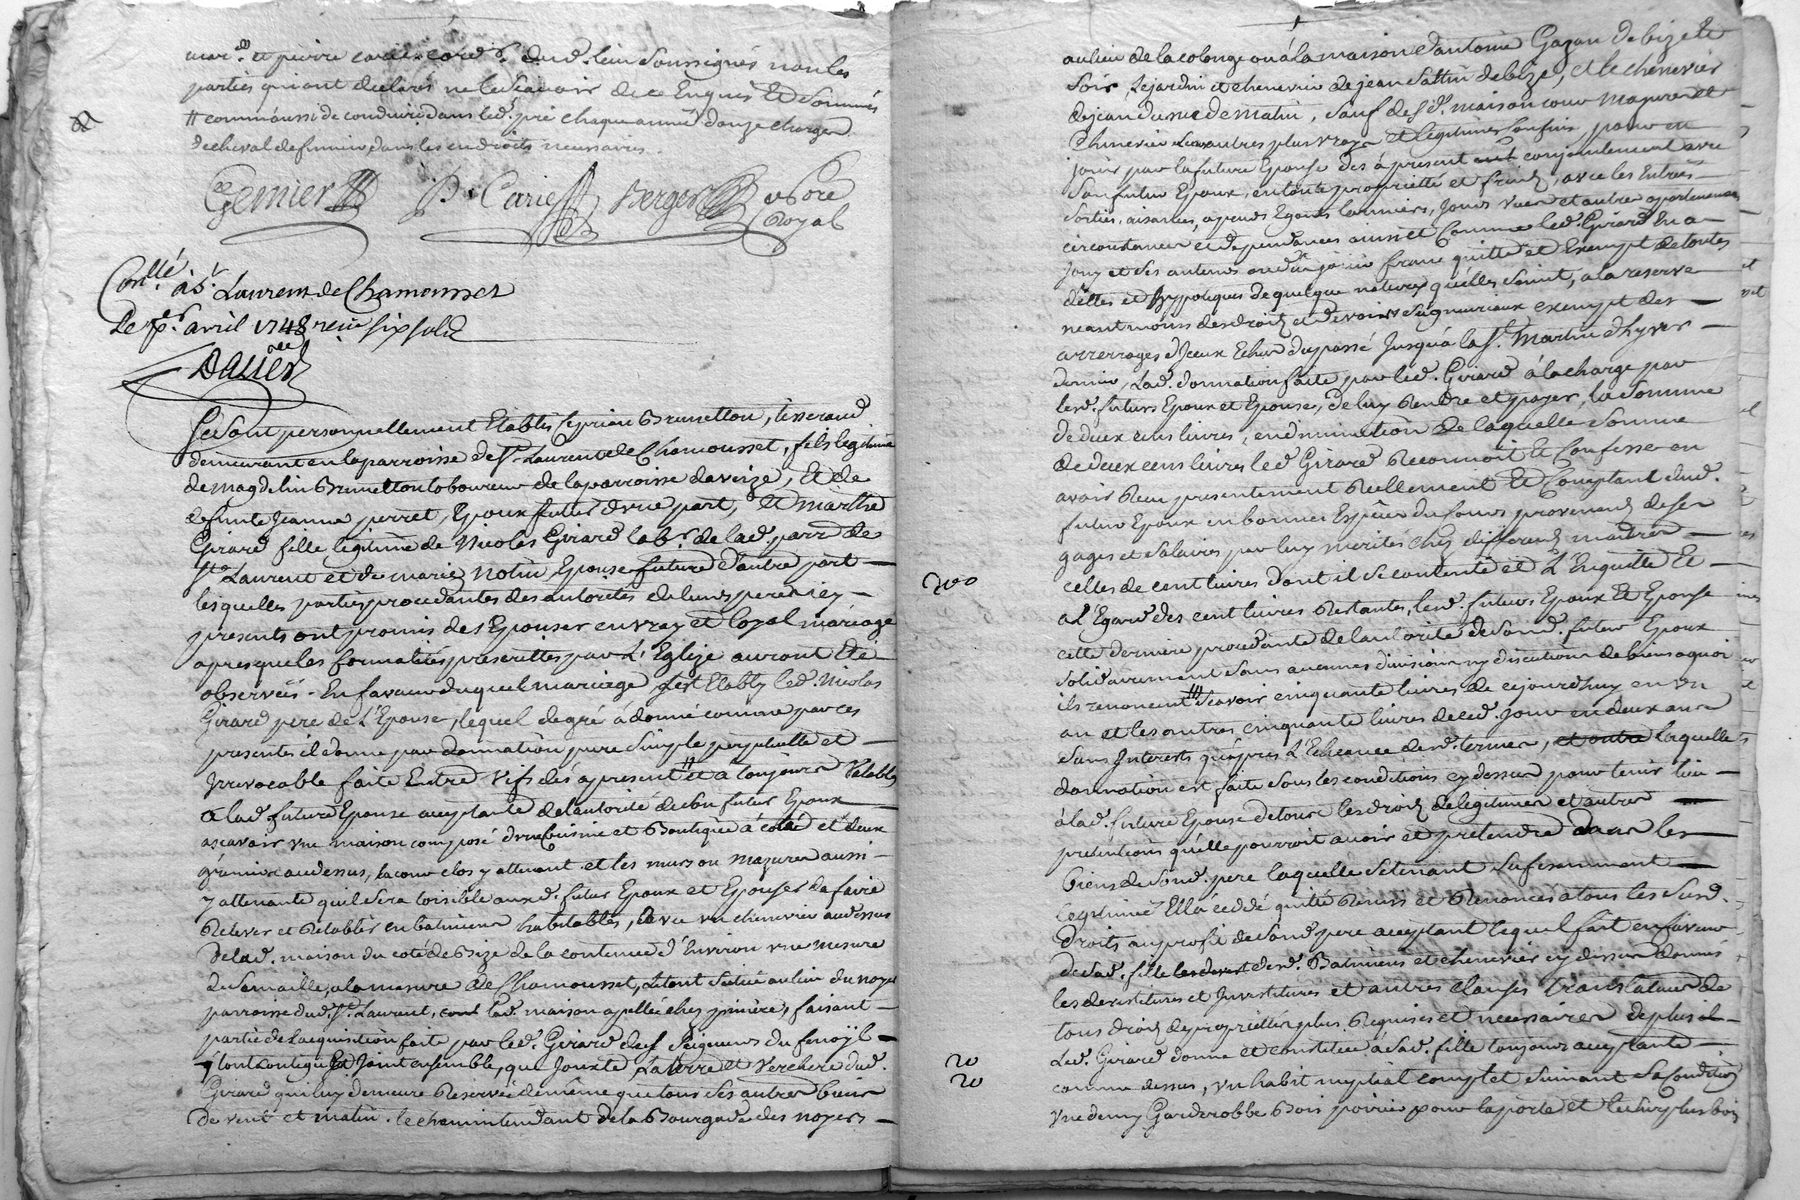 marᵈ et pierre carié cordʳ dudᵗ lieu Soussignés non les
parties qui ont declarés ne le Scavoir de ce Enquis Et Sommés
# comm'aussi de conduire dans led. pré chaque année douze charges
de cheval de fumier dans les endroits necessaires.
Gernier P. Carié Berger
Nore
Royal
Conllé à Sᵗ Laurent de Chamousset
Le pᵉʳ avril 1748 reçu six sols
Dalier
Se Sont personnellement Etablis Ceprian Brunetton, tisserand
demeurant en la parroisse de Sᵗ Laurent de Chamousset, fils legitime
de Magdelin Brunetton laboureur de la parroisse d'aveize, Et de
defunte Jeanne perret, Epoux futur d'une part, Et Marthe
Girard fille legitime de Nicolas Girard labʳ de lad. parr. de
Sᵗ Laurent et de marie Notin Epouse future d'autre part
lesquelles parties procedantes des autorités de leurs peres icy
presents ont promis de s'Epouser en vray et loyal mariage
apres que les formalités prescrittes par L'Eglise auront Eté
observées. En faveur duquel mariage s'est Etably led. Nicolas
Girard pere de L'Epouse, lequel de gré à donné comme par ces
presentes il donne par donnation pure Simple perpetuelle et
Irrevocable faite Entre Vifs dés apresent # et à toujours Valable
a lad. future Epouse acceptante de l'autorité de son futur Epoux
ascavoir une maison composé d'une Cuisine et Boutique à coté et deux
greniers au dessus, la cour clos y attenant et les murs ou mazures aussi
y attenante qu'il Sera loisible auxd. futur Epoux et Epouse de faire
Relever et Retablir en batimens habitables, Plus un chenevier au dessus
de lad. maison du coté de Bize de la contenue d'Environ une mesure
de Semaille, a la mesure de Chamousset, Le tout Scitué au lieu du noyer
parroisse dud. Sᵗ Laurent, lad. maison apellée chez pinière, faisant
partie de l'acquisition faite par led. Girard du Sʳ Seigneur du fenoÿl
le tout contigu Et Joint ensemble, que Jouxte La terre et Verchere dud.
Girard qui luy demeure Reservée de même que tous Ses autres biens
de vent et matin. le chemin tendant de la Bourgade des noyers
au lieu de la colonge ou à la maison d'antoine Gazan de bize et
Soir, Le jardin et chenevier de jean Sattin de bize, et le chenevier
de jean dumas de matin, Sauf desd. maison cour Mazures et
Chenevier Leurs autres plus vrays et legitimes Confins, pour en
jouir par la future Epouse dés à present conjointement avec
Son futur Epoux, en toute proprieté et fruits, avec les Entrées
Sorties, aisances, apends Egouts larmiers, Jours vues et autres apartenances
circonstances et dependances ainsi et Comme led. Girard En a
Jouy et ses auteurs ou dû jouir franc quitte et Exempt de toutes
dettes et hypoteques de quelque nature qu'elles Soient, a la reserve
neantmoins des droits et devoirs Seigneuriaux exempt des
arrerages d'Iceux Echus du passé Jusqu'à la Sᵗ Martin d'hyver
dernier, Lad. donnation faite par led. Girard à la charge par
lesd. futurs Epoux et Epouse, de luy Rendre et payer, la Somme
de deux cens livres, en diminution de laquelle Somme
de deux cens livres led. Girard Reconnoit Et Confesse en
avoir Reçu presentement Reellement Et Comptant dud.
futur Epoux en bonnes Especes du cours provenants de ses
gages et Salaires par luy merités chez differents maitres
celles de cent livres dont il se contente et L'Enquitte Et
a L'Egard des cent livres Restantes, lesd. futurs Epoux Et Epouse
cette derniere procedante de l'autorité de Sond. futur Epoux
Solidairement Sans aucunes division ny discution de biens a quoi
ils renoncent Scavoir cinquante livres de cejourd'huy en un
an et les autres cinquante livres de ced. jour en deux ans
Sans Interets qu'après L'Echeance desd. termes, et outre laquelle
donnation est faite Sous les conditions cy dessus pour tenir lieu
à lad. future Epouse de tous les droits de legitimes et autres
pretentions qu'elle pourroit avoir et pretendre dans les
biens de Sond. pere laquelle Se tenant Sufisamment
legitimée Ella ceddé quitté Remis et Renoncé a tous les Susd.
droits au profit de Sond. pere acceptant lequel fait en faveur
de Sad. fille desd. Batiments et chenevier cy dessus donnés
les devestitures et Investitures et autres clauses translatives de
tous droits de proprieté plus Requises et necessaires de plus
Led. Girard donne et constitue à Sad. fille toujours acceptante
comme dessus, un habit nuptial complet Suivant Sa Condition
une demy Garderobbe Bois poirier pour la porte et le Surplus bois
200
20
20